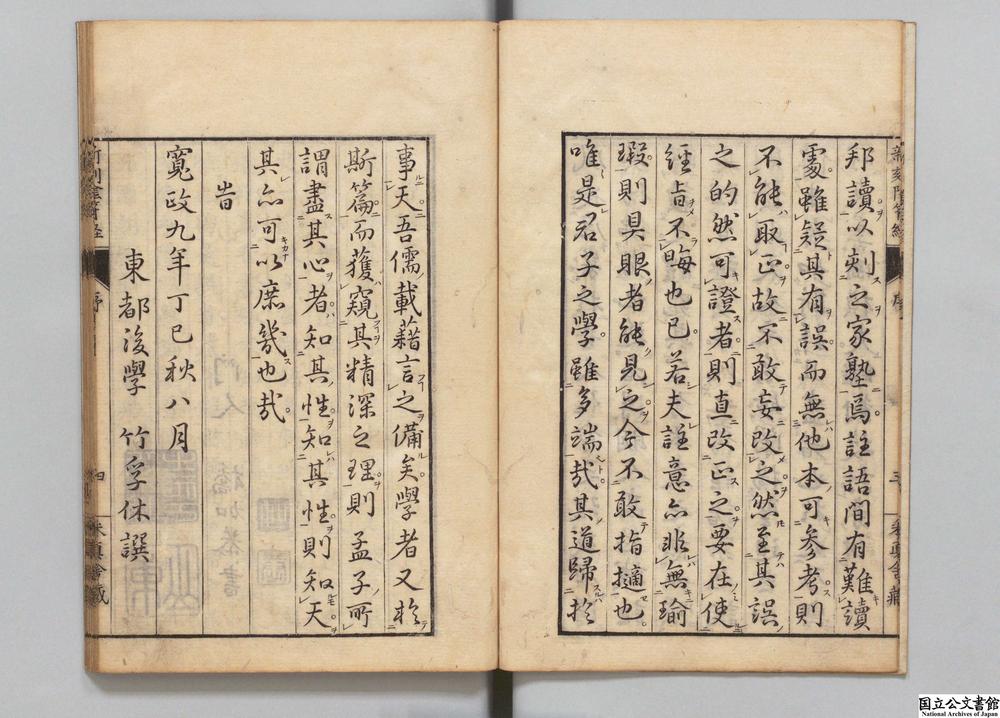 邦讀以刻之家塾焉註語間有難讀
處雖疑其有誤而無他本可參考則
不能取正故不敢妄改之然至其誤
之的然可證者則直改正之要在使
經旨不晦也已若夫註意亦非無瑜
瑕則具眼者能見之今不敢指擿也
唯是君子之學雖多端哉其道歸於
事天吾儒載藉言之備矣學者又於
斯篇而獲窺其精深之理則孟子所
謂盡其心者知其性知其性則知天
其亦可以庶幾也哉
旹
寬政九年丁巳秋八月
東都後學 竹孚休譔
序
四
国立公文書館
National Archives of Japan